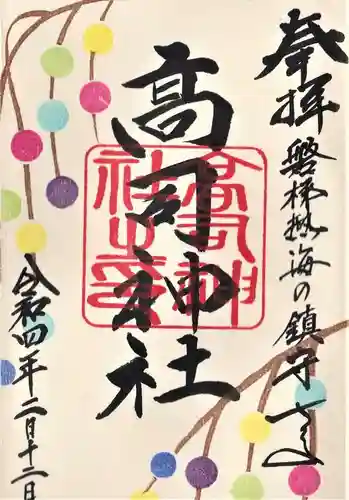 奉拝 磐梯熱海の鎮守
高司神社
高司神
社之印
令和四年二月十二日